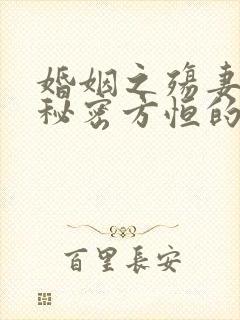 婚姻之殇妻
秘密方恒的
百里長安